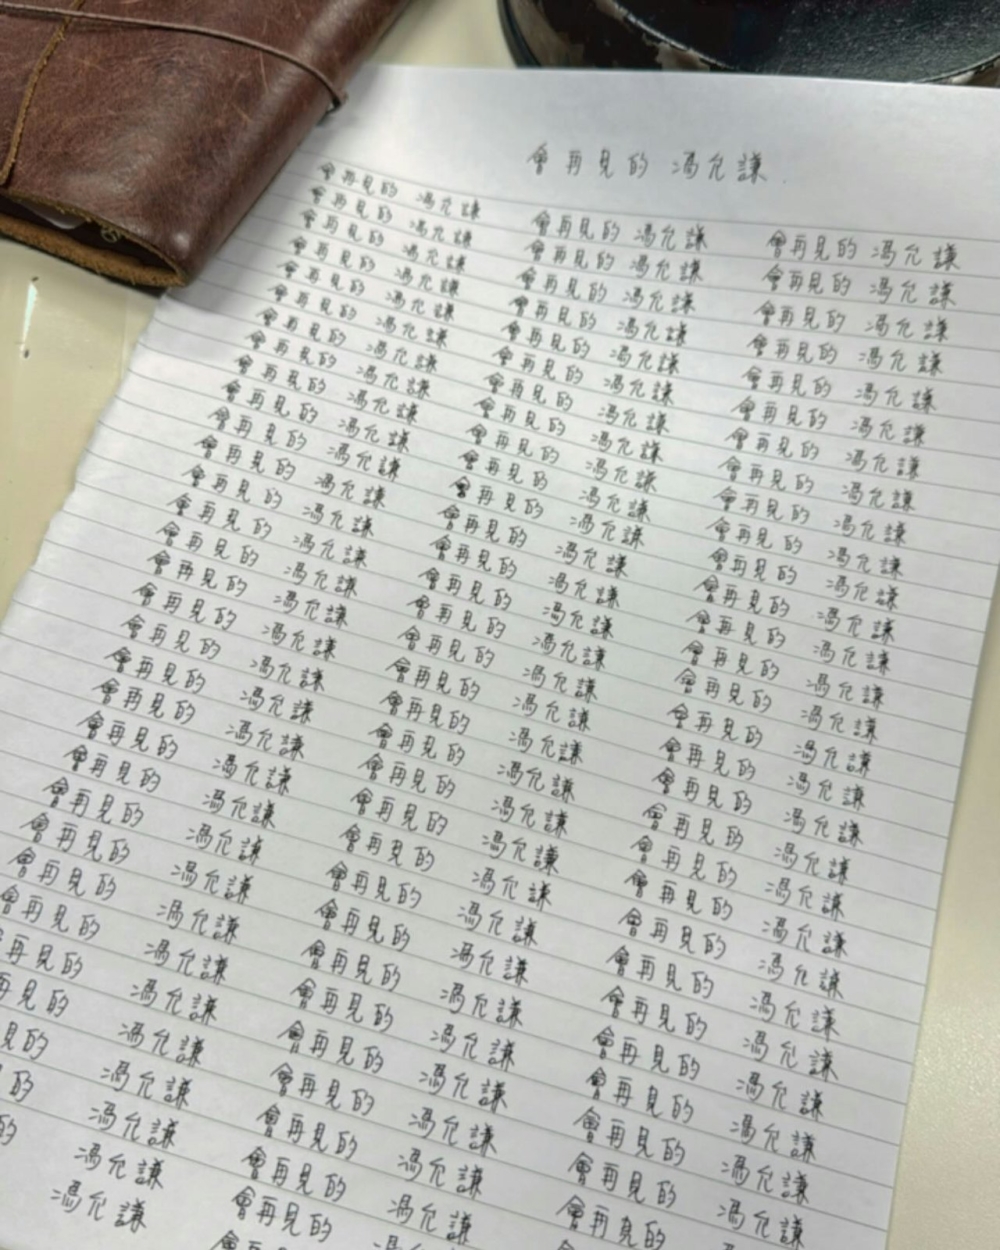 會再見的 馮允謙
會再見的 馮允謙
會再見的 馮允謙
會再見的 馮允謙
會再見的 馮允謙
會再見的 馮允謙
會再見的 馮允謙
會再見的 馮允謙
會再見的 馮允謙
會再見的 馮允謙
會再見的 馮允謙
會再見的 馮允謙
會再見的 馮允謙
會再見的 馮允謙
會再見的 馮允謙
會再見的 馮允謙
會再見的 馮允謙
會再見的 馮允謙
會再見的 馮允謙
會再見的 馮允謙
會再見的 馮允謙
會再見的 馮允謙
會再見的 馮允謙
會再見的 馮允謙
會再見的 馮允謙
會再見的 馮允謙
會再見的 馮允謙
再見的 馮允謙
再見的 馮允謙
見的 馮允謙
的 馮允謙
的 馮允謙
馮允謙
會再見的 馮允謙
會再見的 馮允謙
會再見的 馮允謙
會再見的 馮允謙
會再見的 馮允謙
會再見的 馮允謙
會再見的 馮允謙
會再見的 馮允謙
會再見的 馮允謙
會再見的 馮允謙
會再見的 馮允謙
會再見的 馮允謙
會再見的 馮允謙
會再見的 馮允謙
會再見的 馮允謙
會再見的 馮允謙
會再見的 馮允謙
會再見的 馮允謙
會再見的 馮允謙
會再見的 馮允謙
會再見的 馮允謙
會再見的 馮允謙
會再見的 馮允謙
會再見的 馮允謙
會再見的 馮允謙
會再見的 馮允謙
會再見的 馮允謙
會再見的 馮允謙
會再見的 馮允謙
會再見的 馮允謙
會再見的 馮允謙
會再見的 馮允謙
會再見的 馮允謙
會再見的 馮允謙
會再見的 馮允謙
會再見的 馮允謙
會再見的 馮允謙
會再見的 馮允謙
會再見的 馮允謙
會再見的 馮允謙
會再見的 馮允謙
會再見的 馮允謙
會再見的 馮允謙
會再見的 馮允謙
會再見的 馮允謙
會再見的 馮允謙
會再見的 馮允謙
會再見的 馮允謙
會再見的 馮允謙
會再見的 馮允謙
會再見的 馮允謙
會再見的 馮允謙
會再見的 馮允謙
會再見的 馮允謙
會再見的 馮允謙
會再見的 馮允謙
會再見的 馮允謙
會再見的 馮允謙